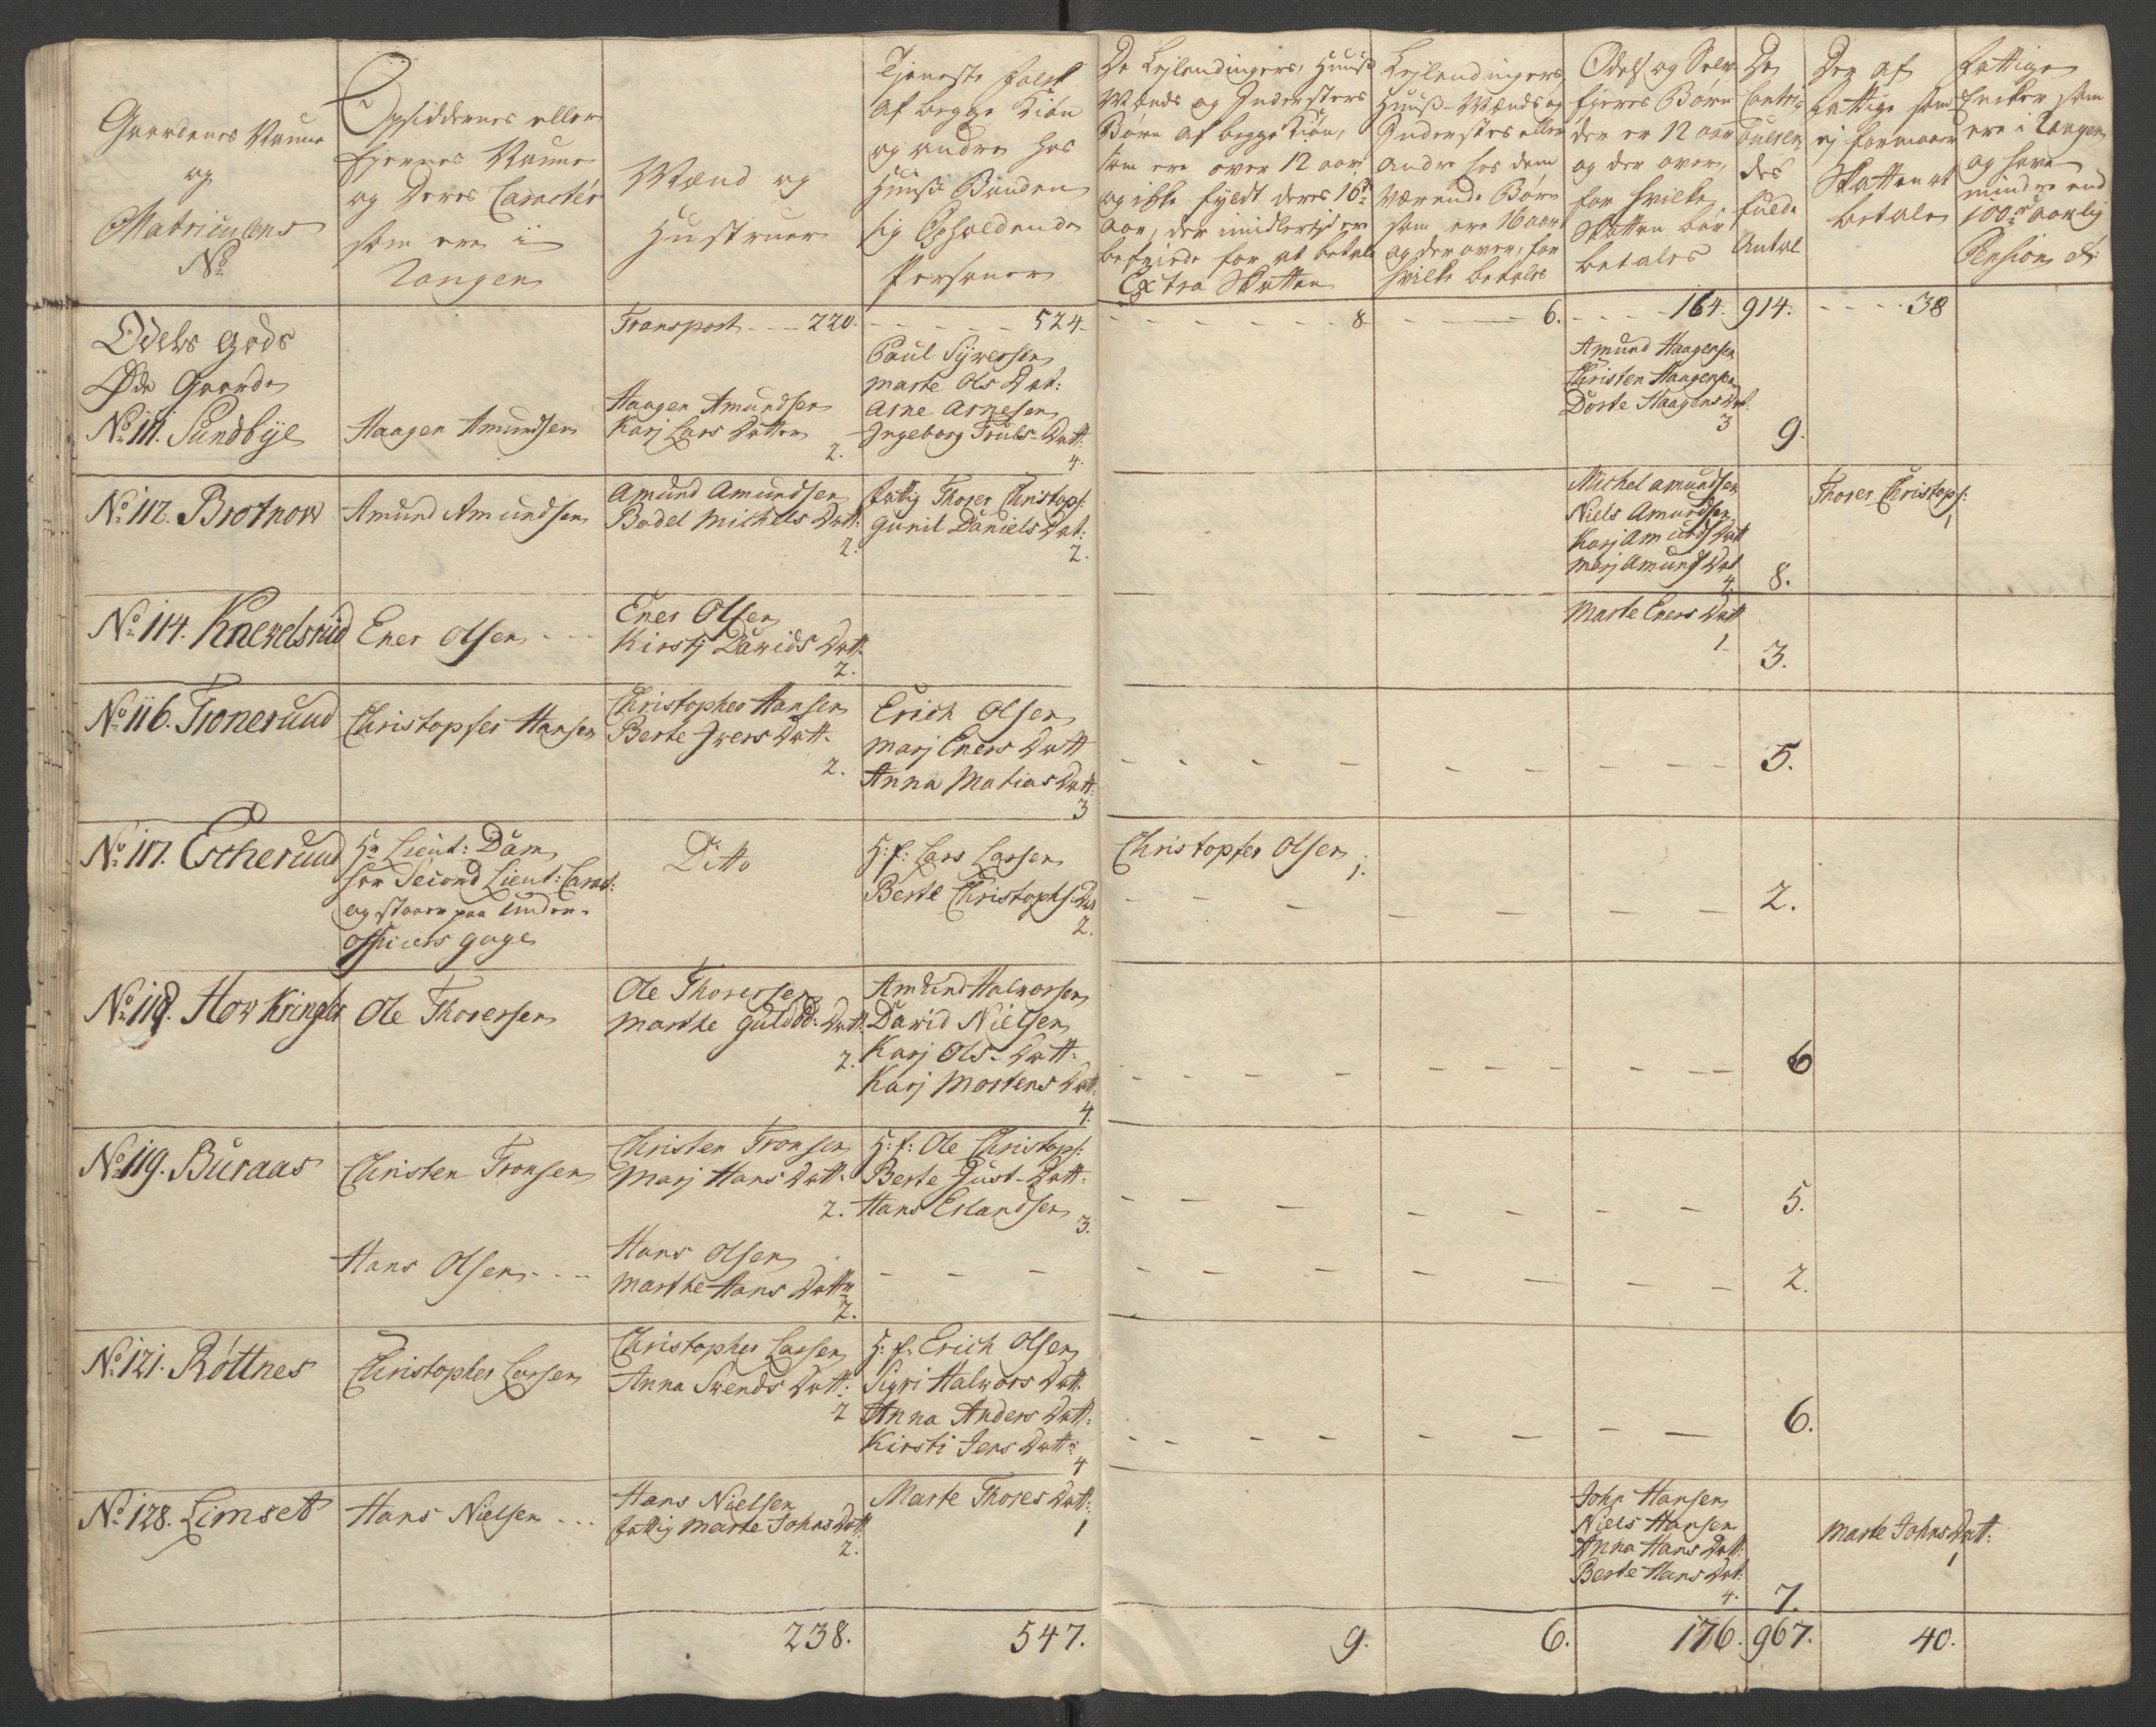 Gaardenes Nafne
og
Matriculens
No
Opsiddernes eller
Ejernes Nafne
og Deres Caracter
som ere i
Rangen
Mænd og
Hustruer
Tjeneste folk
af begge Kiøn
og andre hos
Huuß Bonden
sig Opholdende
Personer
De Lejlendingers, Huuß
Mænds og Indersters
Børn af begge Kiøn,
som ere over 12 aar
og ikke fyldt deres 16de
aar, der imidlertid er
befriede for at betale
Extra Skatten
Lejlendingers
Huuß-Mænds og
Indersters eller
andre hos dem
værende Børn
som ere 16 aar
og derover, for
hvilke betales
Odels og Selv-
Ejeres Børn
der er 12 aar
og der over,
for hvilke
Skatten bør
betales
De
Contri-
bueren-
des
fulde
Antal
Der af
Fattige som
ej formaaer
Skatten at
betale
Fattige
Encker som
ere i Rangen
og have
mindre end
100 rd aarlig
Pension &:
Transport - - - 220. - - - - - 524. - - - - - - - 8. - - - 6. - - - - 164. 914. - - - - 38
Odels Gods
Øde Gaarde
No 111. Sundbye
Haagen Amundsen
Haagen Amundsen
Karj Lars Datter
2.
Paul Syversen
Marte Ols Dat:
Arne Arnesen
Ingeborg Truls Datt:
4.
Amund Haagensen
Christen Haagensen
Dorte Haagens Dat.
3
9.
No 112. Brotnow
Amund Amundsen
Amund Amundsen
Bodel Michels Datt:
2.
fattig Thorer Christops:
Gunil Daniels Dat:
2.
Michel Amundsen
Niels Amundsen
Karj Amunds Datt
Marj Amunds Dat
4.
8.
Thorer Christops:
1
No 114. Knevelsrud
Ener Olsen - - -
Ener Olsen
Kirstj Davids Datt.
2.
Marte Eners Datt
1.
3.
No 116. Troneruud
Christopfer Hansen
Christopher Hansen
Berte Ivers Datt.
2.
Erich Olsen
Marj Eners Datt
Anna Matias Datt:
3
- - - - - - - - - - 5.
No 117. Escheruud
Hr Lieut: Dam
har Second Lieut: Caract:
og staar paa Under-
officiers gage
Ditto
H: f: Lars Larsen
Berte Christophs: Dat
2.
Christopfer Olsen
1.
- - - - - - - - 2.
No 118. How Kringler
Ole Thorersen
Ole Thorersen
Marthe Guldbd: Datt:
2.
Amund Halvorsen
David Nielsen
Karj Ols- Datt:
Karj Mortens Datt.
4.
- - - - - - - - - - 6
No 119. Buraas
Christen Tronsen
Christen Tronsen
Marj Hans Datt.
2.
H: f: Ole Christops:
Berte Gust- Datt:
Hans Erlandsen
3.
- - - - - - - 5.
Hans Olsen - - -
Hans Olsen
Marthe Hans Dattr
2.
- - - - - - - - - - - 2.
No 121. Røttnes
Christopher Larsen
Christopher Larsen
Anna Svends Datt:
2
H: f: Erich Olsen
Sigri Halvors Datt.
Anna Anders Datt:
Kirsti Jens Dattr
4
- - - - - - - - 6.
No 128. Limset
Hans Nielsen - - -
Hans Nielsen
fattig Marte Johns Datt
2.
Marte Thores Datt:
1
John Hansen
Niels Hansen
Anna Hans Datt:
Berte Hans Dat:
4.
7.
Marte Johns Datt:
1
238. 547. 9. 6. 176. 967. 40.